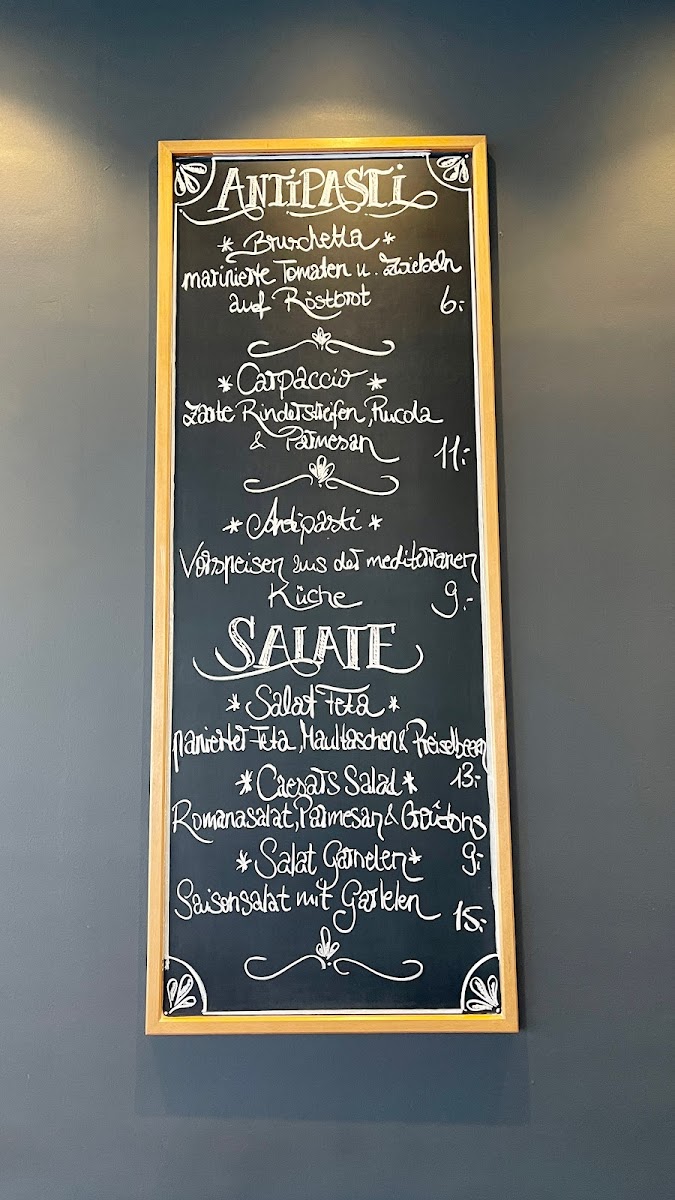 ANTIPASTI
* Bruschetta *
marinierte Tomaten u. Zwiebeln
auf Röstbrot 6.-
* Carpaccio *
Zarte Rinderstreifen, Rucola
& Parmesan
11.-
* Antipasti *
Vorspeisen aus der mediterranen
Küche 9.-
SALATE
* Salat Feta *
panierter Feta, Maultaschen & Preiselbeern
13.-
* Caesars Salad *
Romanasalat, Parmesan & Croûtons
9.-
* Salat Garnelen *
Saisonsalat mit Garlelen
15.-